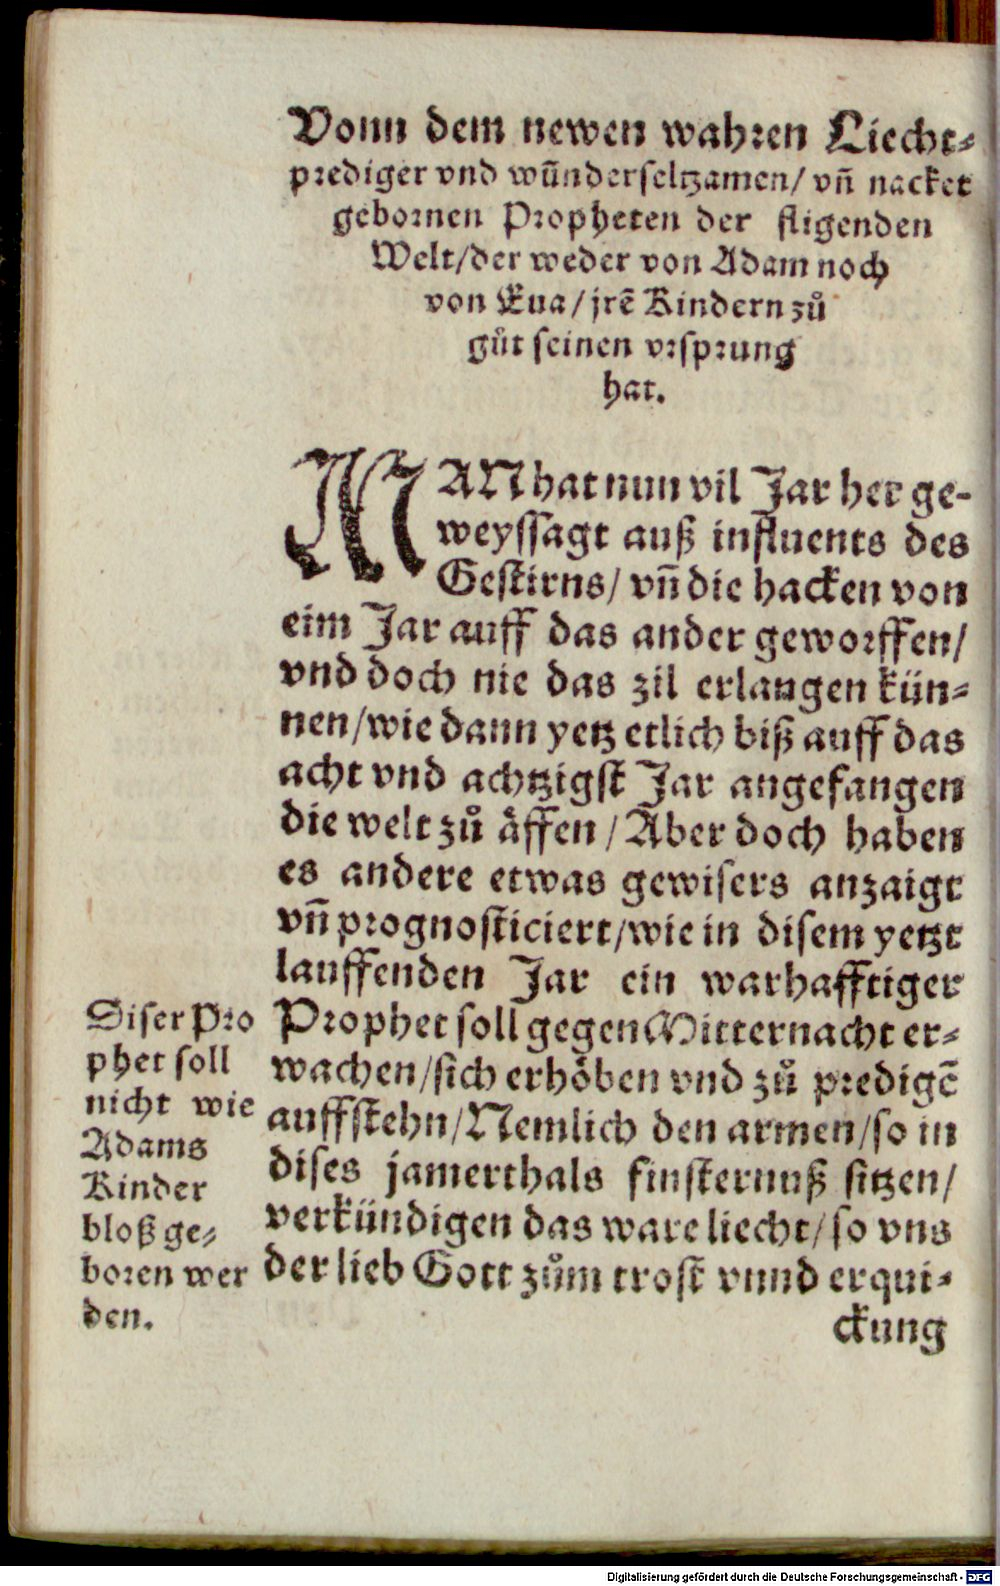 Vonn dem newen wahren Liecht-
prediger vnd wũnderseltzamen/ vñ nacket
gebornen Propheten der fligenden
Welt/der weder von Adam noch
von Eua/ jrẽ Kindern zů
gůt seinen vrsprung
hat.
MAN hat nun vil Jar her ge-
weyssagt auß influents des
Gestirns/ vñ die hacken von
eim Jar auff das ander geworffen/
vnd doch nie das zil erlangen kün-
nen/wie dann yetz etlich biß auff das
acht vnd achtzigst Jar angefangen
die welt zů äffen/ Aber doch haben
es andere etwas gewisers anzaigt
vñ prognosticiert/wie in disem yetzt
lauffenden Jar ein warhafftiger
Prophet soll gegen Mitternacht er-
wachen/sich erhöben vnd zů predigẽ
auffstehn/Nemlich den armen/so in
dises jamerthals finsternuß sitzen/
verkündigen das ware liecht/so vns
der lieb Gott zům trost vnnd erqui-
ckung
Diser Pro
phet soll
nicht wie
Adams
Kinder
bloß ge-
boren wer
den.
Digitalisierung gefördert durch die Deutsche Forschungsgemeinschaft - DFG